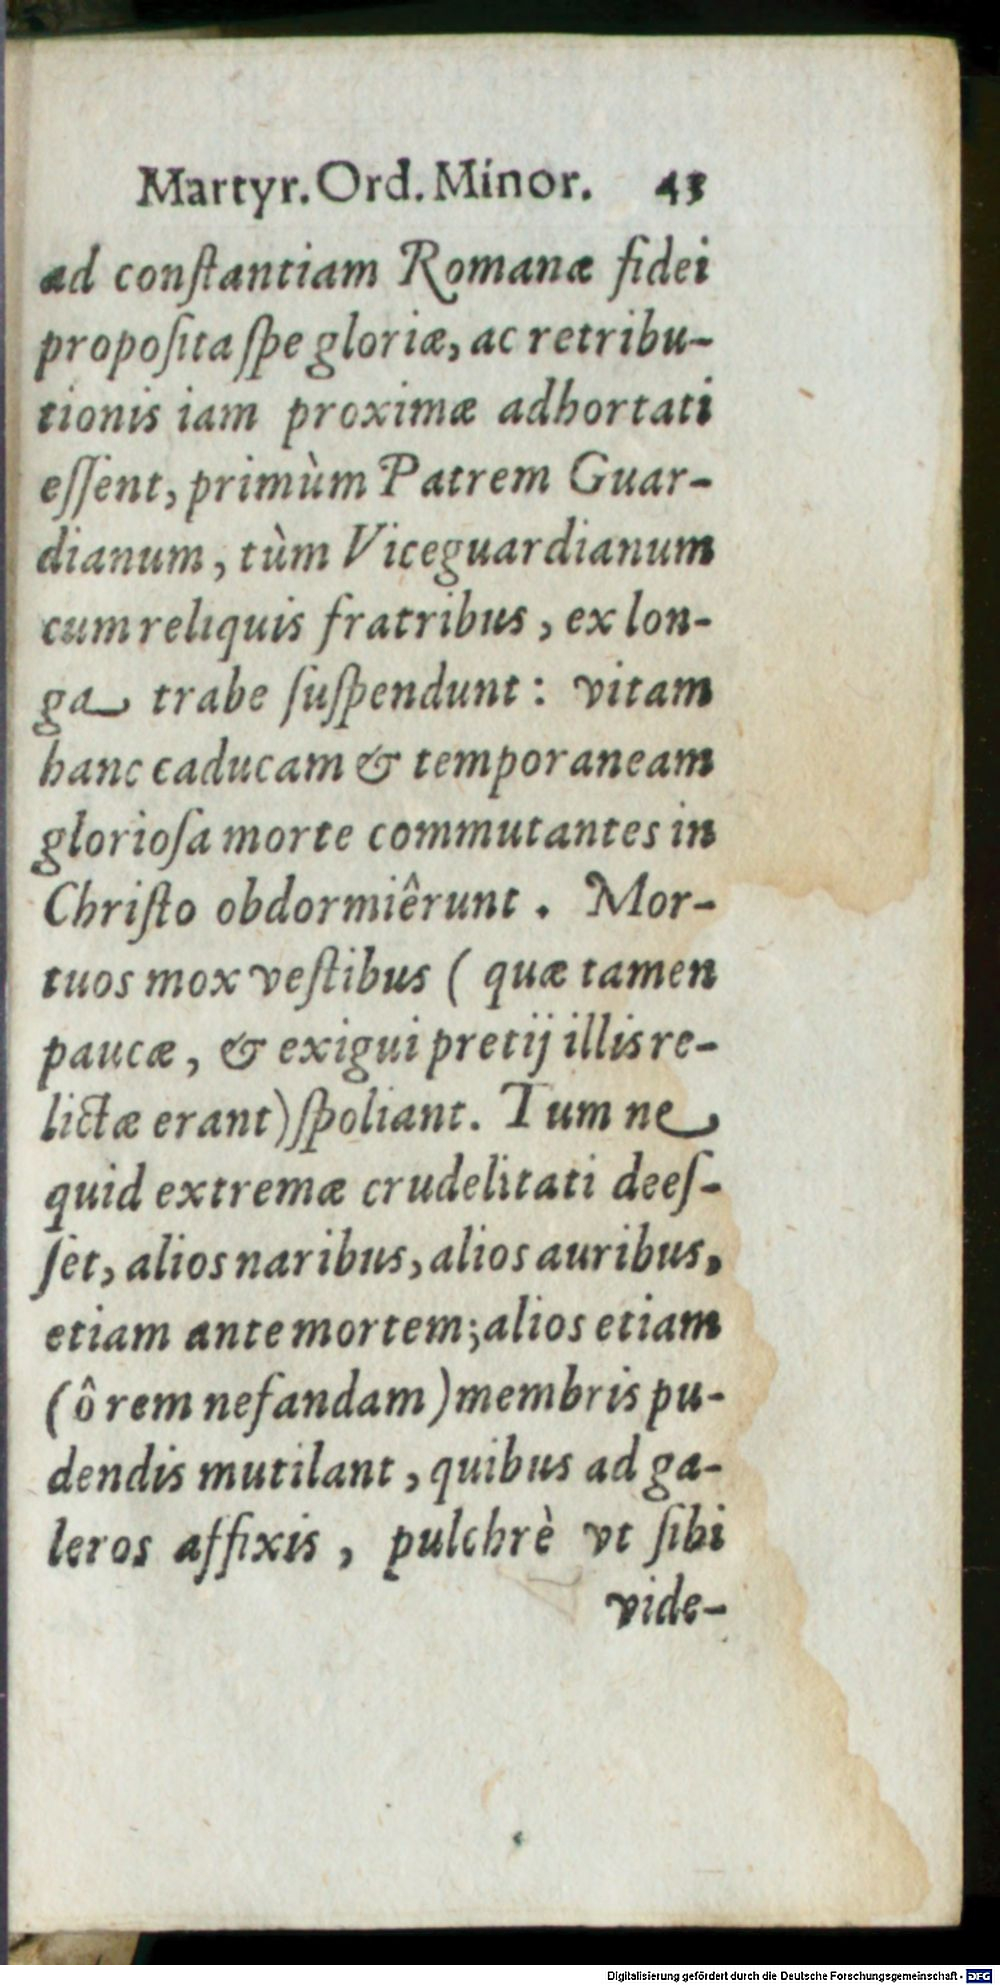 Martyr. Ord. Minor. 43
ad conſtantiam Romanæ fidei
propoſita ſpe gloriæ, ac retribu-
tionis iam proximæ adhortati
eſſent, primùm Patrem Guar-
dianum, tùm Viceguardianum
cum reliquis fratribus, ex lon-
ga trabe ſuſpendunt: vitam
hanc caducam & temporaneam
glorioſa morte commutantes in
Chriſto obdormiêrunt. Mor-
tuos mox veſtibus ( quæ tamen
paucæ, & exigui pretij illis re-
lictæ erant) ſpoliant. Tum ne
quid extremæ crudelitati deeſ-
ſet, alios naribus, alios auribus,
etiam ante mortem; alios etiam
(ô rem nefandam) membris pu-
dendis mutilant, quibus ad ga-
leros affixis, pulchrè vt ſibi
vide-
Digitalisierung gefördert durch die Deutsche Forschungsgemeinschaft - DFG